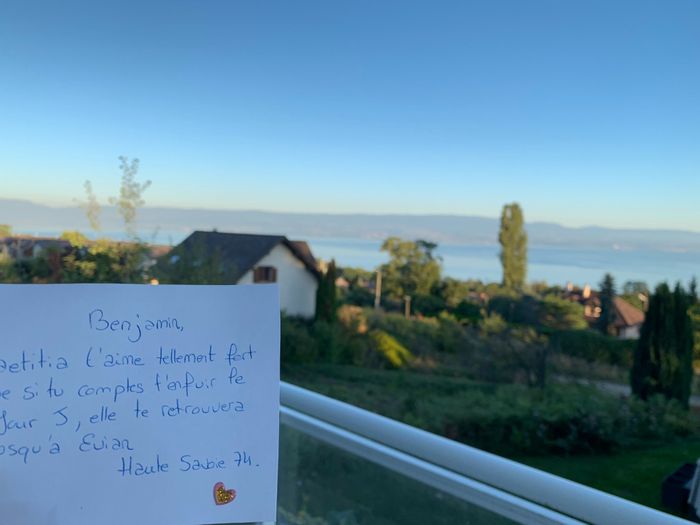 Benjamin,
aetitia t'aime tellement fort
e si tu comptes t'enfuir le
Jour J, elle te retrouvera
usqu'à Evian
Haute Savoie 74.